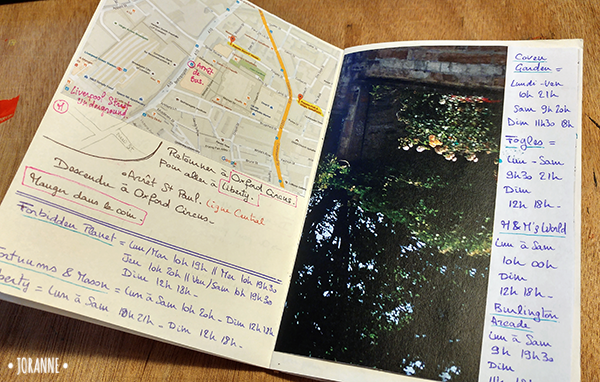 Arrêt
de
Bus.
Liverpool Street
Underground
Retourner à Oxford Circus
Pour aller à Liberty.
Descendre à Arrêt St Paul, Ligne Central
à Oxford Circus.
Manger dans le coin.
Forbidden Planet = Lun/Mar 10h 19h || Mer 10h 19h30
Jeu 10h 20h || Ven/Sam 10h 19h30
Dim 12h 18h_
& Mason = Lun à Sam 10h 20h_ Dim 12h
= Lun à Sam 10h 21h_ Dim 12h 18h_
Coven
Garden =
Lundi-Ven
10h 21h
Sam 9h 20h
Dim 11h30 18h
Foyles =
Lun-Sam
9h30 21h
Dim
12h 18h_
M&M's World
Lun à Sam
10h 00h
Dim
12h 18h_
Burlington
Arcade
Lun à Sam
9h 19h30
Dim
• JORANNE •